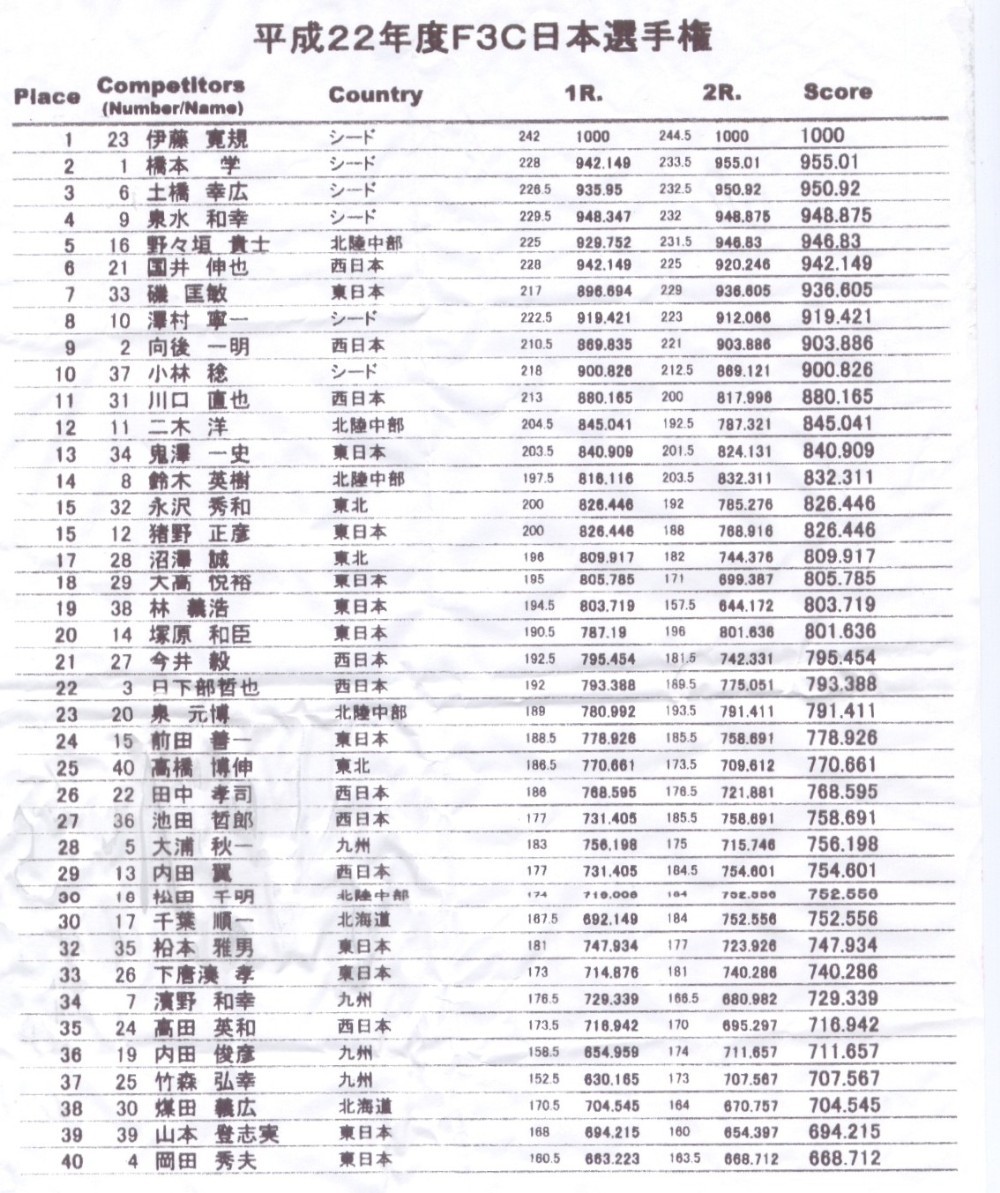 平成22年度F3C日本選手権
Place Competitors (Number/Name) Country 1R. 2R. Score
1 23 伊藤 寛規 シード 242 1000 244.5 1000 1000
2 1 橋本 学 シード 228 942.149 233.5 955.01 955.01
3 6 土橋 幸広 シード 226.5 935.95 232.5 950.92 950.92
4 9 泉水 和幸 シード 229.5 948.347 232 948.875 948.875
5 16 野々垣 貴士 北陸中部 225 929.752 231.5 946.83 946.83
6 21 国井 伸也 西日本 228 942.149 225 920.246 942.149
7 33 磯 匡敏 東日本 217 896.694 229 936.605 936.605
8 10 澤村 寧一 シード 222.5 919.421 223 912.066 919.421
9 2 向後 一明 西日本 210.5 869.835 221 903.886 903.886
10 37 小林 稔 シード 218 900.826 212.5 869.121 900.826
11 31 川口 直也 西日本 213 880.165 200 817.996 880.165
12 11 二木 洋 北陸中部 204.5 845.041 192.5 787.321 845.041
13 34 鬼澤 一史 東日本 203.5 840.909 201.5 824.131 840.909
14 8 鈴木 英樹 北陸中部 197.5 816.116 203.5 832.311 832.311
15 32 永沢 秀和 東北 200 826.446 192 785.276 826.446
15 12 猪野 正彦 東日本 200 826.446 188 768.916 826.446
17 28 沼澤 誠 東北 196 809.917 182 744.376 809.917
18 29 大高 悦裕 東日本 195 805.785 171 699.387 805.785
19 38 林 義浩 東日本 194.5 803.719 157.5 644.172 803.719
20 14 塚原 和臣 東日本 190.5 787.19 196 801.636 801.636
21 27 今井 毅 西日本 192.5 795.454 181.5 742.331 795.454
22 3 日下部哲也 西日本 192 793.388 189.5 775.051 793.388
23 20 泉 元博 北陸中部 189 780.992 193.5 791.411 791.411
24 15 前田 善一 東日本 188.5 778.926 185.5 758.691 778.926
25 40 高橋 博伸 東北 186.5 770.661 173.5 709.612 770.661
26 22 田中 孝司 西日本 186 768.595 176.5 721.881 768.595
27 36 池田 哲郎 西日本 177 731.405 185.5 758.691 758.691
28 5 大浦 秋一 九州 183 756.198 175 715.746 756.198
29 13 内田 翼 西日本 177 731.405 184.5 754.601 754.601
30 18 松田 千明 北陸中部 174 719.008 184 752.556 752.556
30 17 千葉 順一 北海道 167.5 692.149 184 752.556 752.556
32 35 松本 雅男 東日本 181 747.934 177 723.926 747.934
33 26 下唐湊 孝 東日本 173 714.876 181 740.286 740.286
34 7 濱野 和幸 九州 176.5 729.339 166.5 680.982 729.339
35 24 高田 英和 西日本 173.5 716.942 170 695.297 716.942
36 19 内田 俊彦 九州 158.5 654.959 174 711.657 711.657
37 25 竹森 弘幸 九州 152.5 630.165 173 707.567 707.567
38 30 煤田 義広 北海道 170.5 704.545 164 670.757 704.545
39 39 山本 登志実 東日本 168 694.215 160 654.397 694.215
40 4 岡田 秀夫 東日本 160.5 663.223 163.5 668.712 668.712